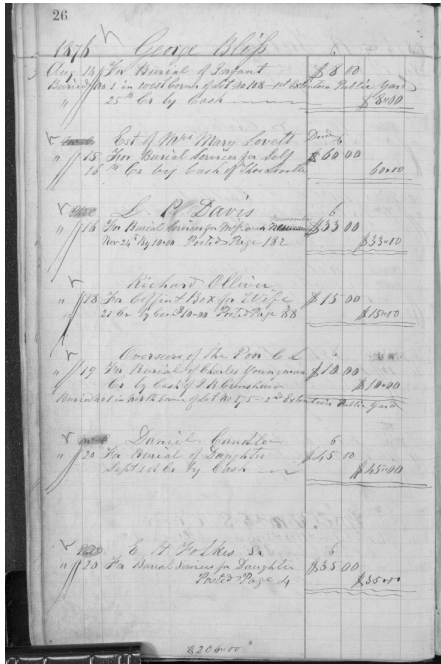 26
1876 George Bliss
Aug 14 For Burial of Infant $8 00
Buried No 2 in West Corner of Lot No 108 - 1st Extention Public Yard
" 25th Cr by Cash $8.00
Est of Mrs Mary Lovett
" 15 For Burial Services for Self $60 00
16th Cr by Cash of 60.00
L P Davis
" 16 For Burial Services for $33 00
Nov 24th By 10.00 Posted Page 182 $33.00
Richard Olliver
" 18 For Coffin & Box for Wife $15 00
21 Cr by Cash 10.00 Posted Page 88 $15.00
Overseers of the Poor C L
" 19 For Burial of Charles Youngman $10 00
Cr by Cash of $10.00
Buried No 1 in North Corner of Lot No 175 - 2nd Extention Public Yard
Daniel Candler
" 20 For Burial of Daughter $45 00
Sept 1st Cr by Cash $45.00
E H Folkes Sr
" 20 For Burial Services for Daughter $35 00
Posted Page 4 $35.00
$206.00